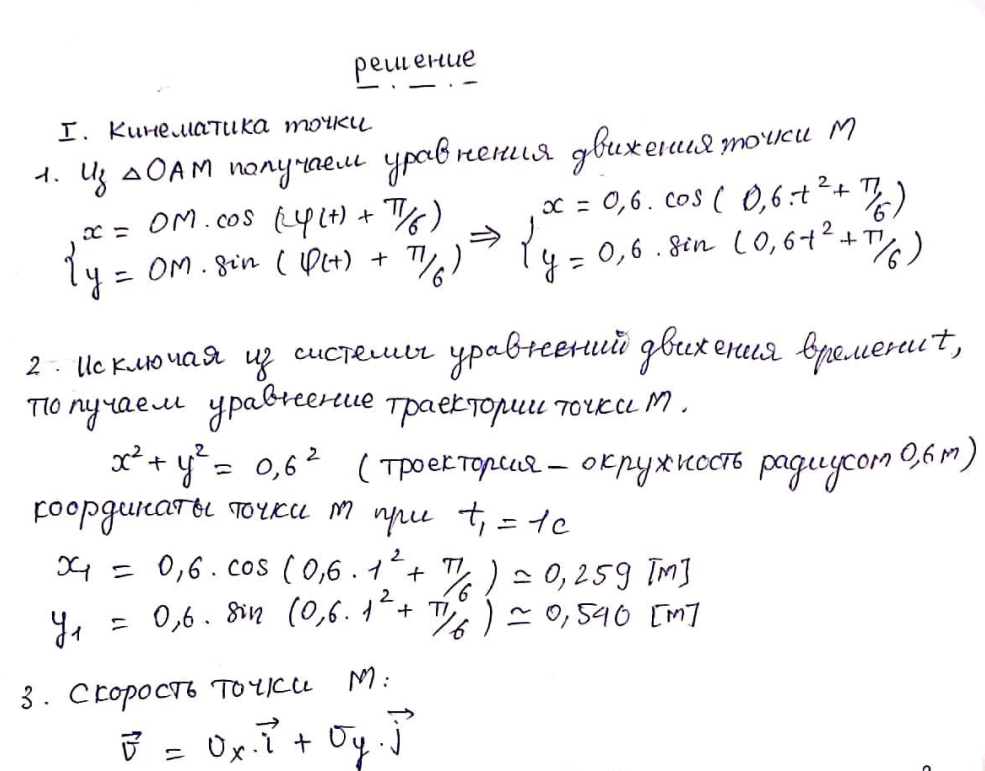 решение
I. Кинематика точки
1. Из △OAM получаем уравнения движения точки M
{ x = OM·cos (φ(t) + π/6) ⇒ { x = 0,6·cos (0,6·t² + π/6)
{ y = OM·sin (φ(t) + π/6) { y = 0,6·sin (0,6t² + π/6)
2. Исключая из системы уравнений движения времени t,
получаем уравнение траектории точки M.
x² + y² = 0,6² (троектория – окружность радиусом 0,6м)
координаты точки M при t₁ = 1с
x₁ = 0,6·cos (0,6·1² + π/6) ≃ 0,259 [м]
y₁ = 0,6·sin (0,6·1² + π/6) ≃ 0,540 [м]
3. Скорость точки M:
v⃗ = υx·i⃗ + υy·j⃗